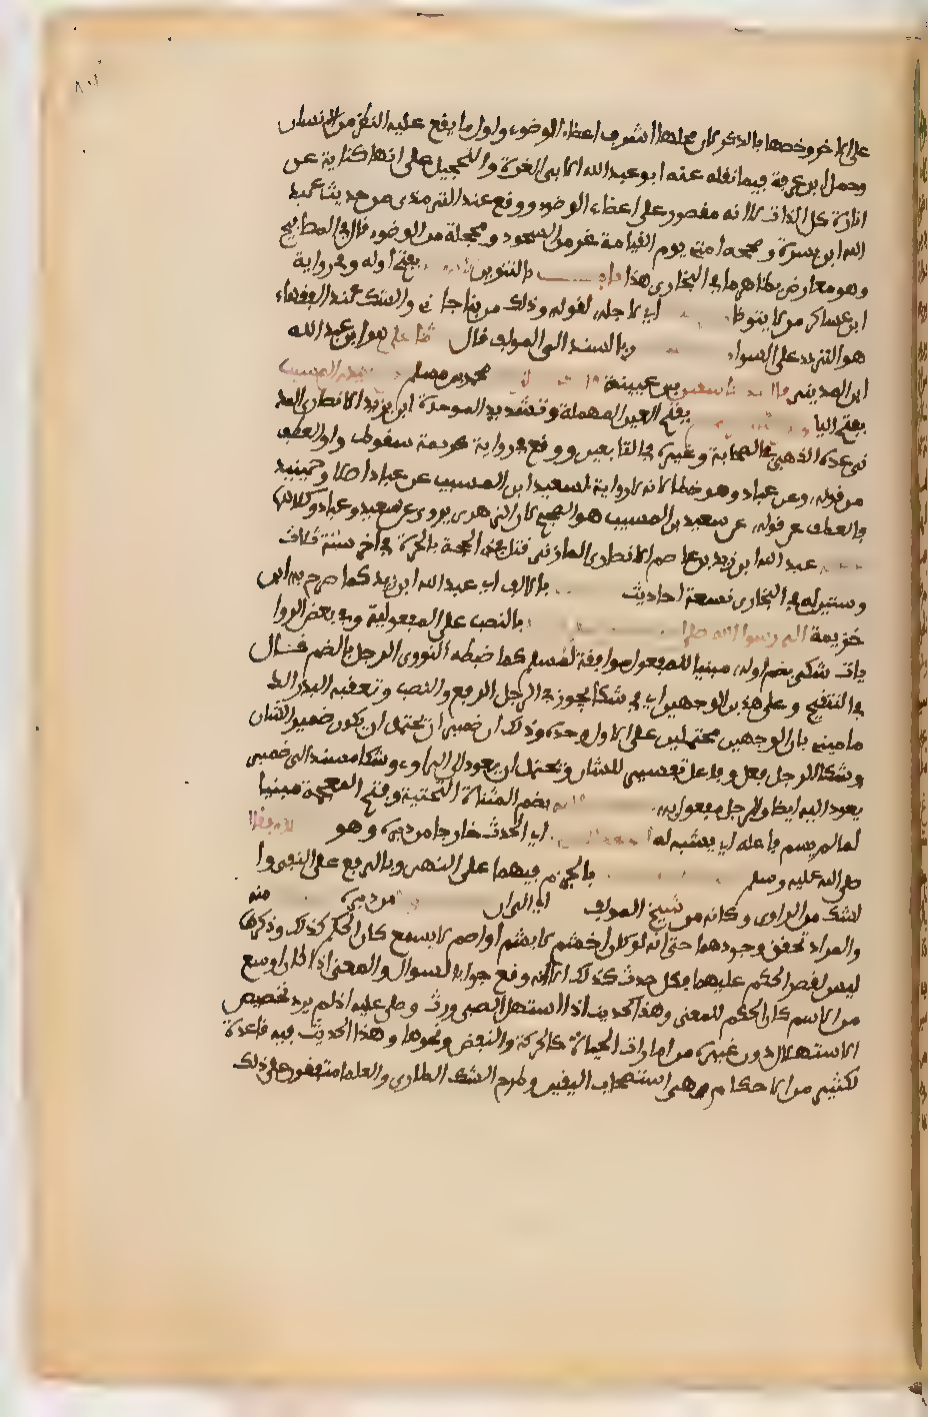 على الاخر وخصها بالذكر لان محلها اشرف اعضاء الوضوء واول ما يقع عليه النظر من الانسان
وحمل ابن عرفة فيما نقله عنه ابو عبد الله الابى الغرة والتحجيل على انهما كناية عن
انارة كل الذات لا انه مقصور على اعضاء الوضوء ووقع عند الترمذى من حديث عبد
الله ابن بسرة وصححه امتى يوم القيامة غر من السجود ومحجلة من الوضوء قال فى المطابح
وهو معارض بظاهر ما فى البخارى هذا باب بالتنوين بفتح اوله وفى رواية
ابن عساكر من لا يتوضا اى لاجله لقوله وذلك من بنا جانى والشك عند الفقهاء
هو التردد على السواء وبالسند الى المولف قال ثنا على هو ابن عبد الله
ابن المدينى سفين بن عيينة محمد بن مسلم المسيب
بفتح اليا بفتح العين المهملة وتشديد الموحدة ابن يزيد الانصارى المد
نى عده الذهبى فى الصحابة وغيره فى التابعين ووقع فى رواية كريمة سقوط واو العطف
من قوله وعن عباد وهو خطا لانه لا رواية لسعيد ابن المسيب عن عباد اصلا وحينيد
فالعطف عن قوله عن سعيد بن المسيب هو الصحيح لان الزهرى يروى عن سعيد وعباد وكلاهما
عبد الله ابن زيد بن عاصم الانصارى المازنى قتل فى ذى الحجة بالحرة فى اخر سنة ثلاث
وستين له فى البخارى تسعة احاديث بالالف اى عبد الله ابن زيد كما صرح به ابن
خزيمة الى رسول الله صلى بالنصب على المفعولية وفى بعض الروا
يات شكى بضم اوله مبنيا للمفعول موافقة لمسلم كما ضبطه النووى الرجل بالضم قال
فى التنقيح وعلى هذين الوجهين اى فى شكا يجوز فى الرجل الرفع والنصب وتعقبه البدر الد
مامينى بان الوجهين محتملين على الاول وحده وذلك ان ضمير انه يحتمل ان يكون ضمير الشان
وشكا الرجل فعل وفاعل تفسير للشان ويحتمل ان يعود الى الراوى وشكا مسند الى ضمير
يعود اليه ايضا والرجل مفعول به بضم المثناة التحتية وفتح المعجمة مبنيا
لما لم يسم فاعله اى يشبه له اى الحدث خارجا من دبره وهو فقال
صلى الله عليه وسلم بالجزم فيهما على النهى وبالرفع على النفى وا
لشك من الراوى وكانه من شيخ المولف اى الى ان من دبره منه
والمراد تحقق وجودهما حتى انه لو كان اخشم لا يشم او اصم لا يسمع كان الحكم كذلك وذكرهما
ليس لقصر الحكم عليهما فكل حدث كذلك الا انه وقع جوابا لسوال والمعنى اذا كان اوسع
من الاسم كان الحكم للمعنى وهذا كحديث اذا استهل الصبى ورث وصلى عليه اذ لم يرد تخصيص
الاستهلال دون غيره من امارات الحياة كالحركة والنبض ونحوها وهذا الحديث فيه قاعدة
لكثير من الاحكام وهى استصحاب اليقين وطرح الشك الطارى والعلما متفقون على ذلك